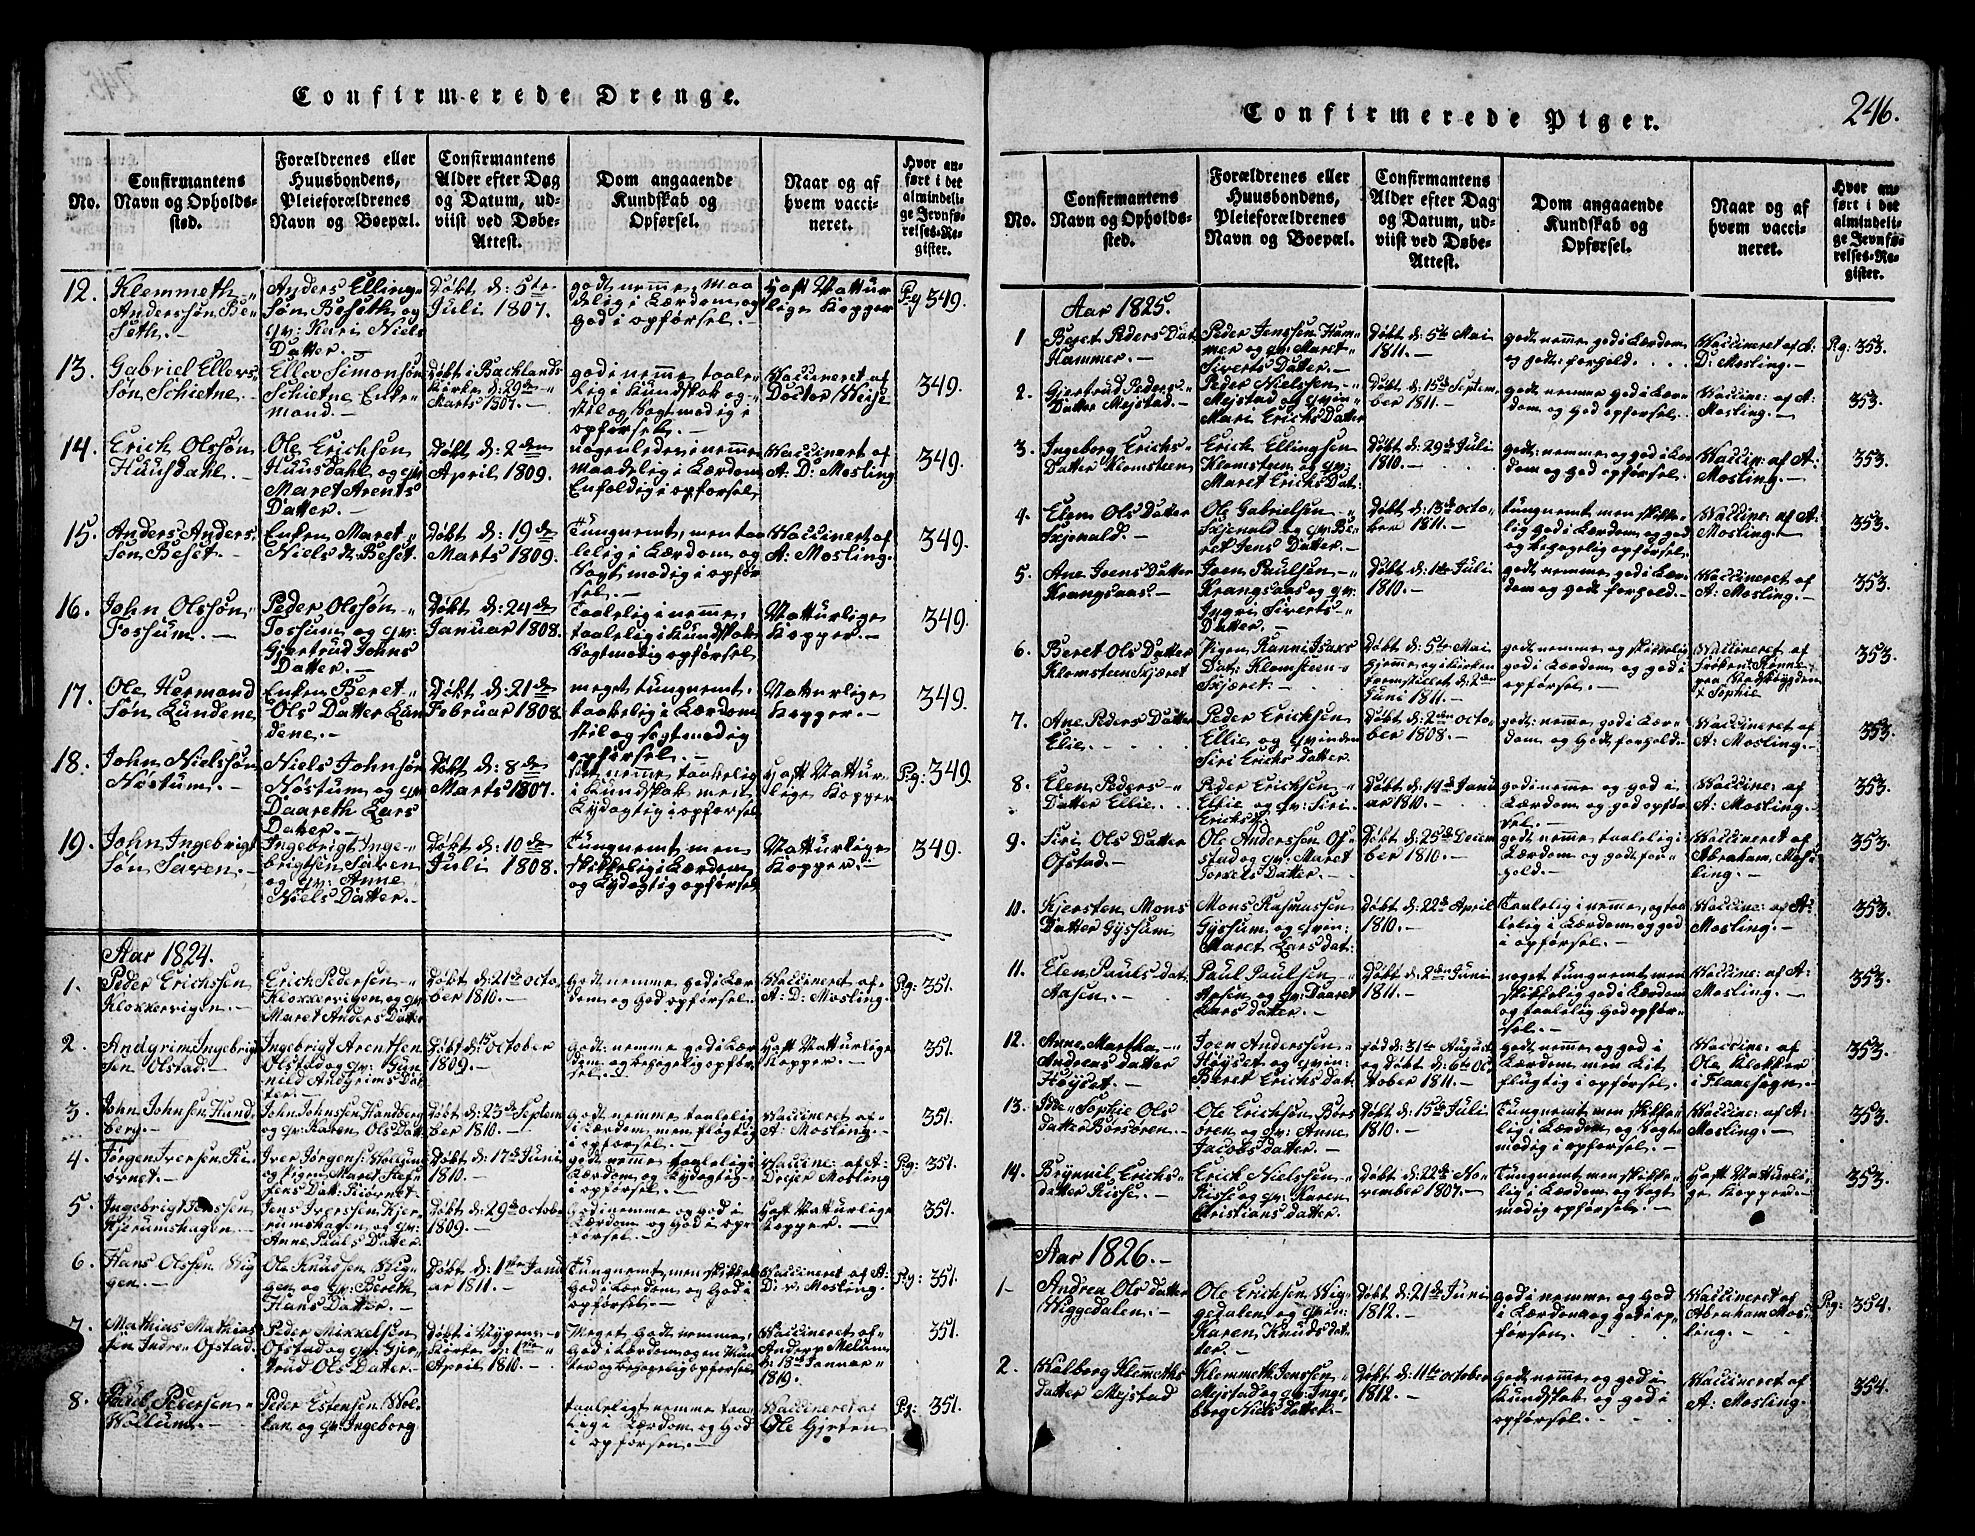 Confirmerede Drenge.
No.
Confirmantens
Navn og Opholds-
sted.
Forældrenes eller
Huusbondens,
Pleieforældrenes
Navn og Boepæl.
Confirmantens
Alder efter Dag
og Datum, ud-
viist ved Døbe-
Attest.
Dom angaaende
Kundskab og
Opførsel.
Naar og af
hvem vacci-
neret.
Hvor an-
ført i det
almindeli-
ge Jevnfø-
relses-Re-
gister.
12.
Klemmeth
Anderssøn Be-
seth.
Anders Elling-
søn Beseth og
qv: Kari Niels
Datter.
Døbt d: 5te
Juli 1807.
godt nemme, maa
delig i Lærdom og
God i opførsel.
Haft Nattur
lige Kopper
Pg 349.
13.
Gabriel Ellevs-
søn Schietne.
Ellev Simonsøn
Schietne Enke-
mand.
Døbt i Backlands
Kirke d: 29de
Marts 1807.
god i nemme, taale-
lig i Kundskab og
stil og Sagtmodig i
opførsel.
Vaccineret af
Doctor Weise
349.
14.
Erich Olssøn
Huusdahl.
Ole Erichsen
Huusdahl og qv:
Maret Arents
Datter.
Døbt d: 2den
April 1809.
nogenledes i nemme
maadelig i Lærdom
Enfoldig i opførsel
Vaccineret af
A: D: Mosling
349.
15.
Anders Anders
Søn Beset.
Enken Maret
Niels d: Beset.
Døbt d: 19de
Marts 1809.
Tungnemt, men taa
lelig i Lærdom og
Sagtmodig i opfør
sel.
Vaccineret af
A: Mosling.
349.
16.
John Olssøn
Fossum.
Peder Olssøn
Fossum og qv:
Gjertrud Johns
Datter.
Døbt d: 24de
Januar 1808.
Taalelig i nemme,
taalelig i Kundskab
Sagtmodig opførsel
Natturlige
Kopper.
349.
17.
Ole Hermand
Søn Lundene
Enken Beret
Ols Datter Lun
dene.
Døbt d: 21de
Februar 1808.
meget tungnemt.
taalelig i Lærdom
stil og sagtmodig
opførsel.
Natturlige
Kopper.
349.
18.
John Nielssøn
Nøstum.
Niels Johnsøn
Nøstum og qv
Daareth Lars
Datter.
Døbt d: 8de
Marts 1807.
nemme taalelig
i Kundskab men
Lydagtig i opførsel
Haft Nattur-
lige Kopper
Pg: 349.
19.
John Ingebrigt
Søn Saxen.
Ingebrigt Inge-
brigtsen Saxen
og qv: Anne
Niels Datter.
Døbt d: 10de
Juli 1808.
Tungnemt men
skikkelig i Lærdom
og Lydagtig opførsel
Natturlige
Kopper.
349.
Aar 1824.
1.
Peder Erichssen
Klokkervigen.
Erich Pedersen
Klokkervigen og qv
Maret Anders Datter
Døbt d: 21de octo
ber 1810.
godt nemme god i Lær
dom og God opførsel.
Vaccineret af
A: D: Mosling.
Pg: 351.
2.
Andgrim Ingebrigt
sen Olstad.
Ingebrigt Arentsen
Olstad og qv: Gun
nild Andgrims Dat
ter.
Døbt d: 15 October
1809.
godt nemme god i Lær
dom og behagelig opfør
sel.
Haft Natturlige
Kopper.
351.
3.
John Johnsen Hund
berg.
John Johnssen Hundberg
og qv: Karen Ols Datt
Døbt d: 23de Septem
ber 1810.
godt nemme taalelig
i Lærdom, men fløgtig
i opførsel.
Vaccineret af
A: Mosling.
351.
4.
Jørgen Iversen Bi
ørnet.
Iver Jørgens:
og Pigen Maret Stef
fens Datt: Biørnet
Døbt d: 17de Juni
1810.
godt nemme taalelig i
Lærdom og Lydagtig
i opførsel.
Vaccine: af A:
Dreier Mosling
Pg: 351.
5.
Ingebrigt Jenssen
Kjerumshagen.
Jens Iverssen Kjer
umshagen og qv:
Anne Pauls Datter.
Døbt d: 29de octobe
1809.
God i nemme god i
Lærdom og God i op
førsel.
Haft Natturlige
Kopper.
351.
6.
Hans Olssen Wig
gen.
Ole Knudsen Wig-
gen og qv: Bereth
Hans Datter.
Døbt d: 1ste Janu
ar 1811.
Tungnemt, men skikkel
God i Lærdom og God i
opførsel.
Vaccineret af A:
D: v: Mosling.
Pg: 351.
7.
Mathias Mathias
sen Ofstad.
Peder Mikkelsen
Ofstad og qv: Gjer
trud Ols Datter.
Døbt i
Kirke d: 1ste
April 1810.
Meget Godt nemme,
God i Lærdom og en Mun
ter og behagelig opførsel
Vaccineret af
Anders Melum
d: 18de Januar
1819.
351.
8.
Paul Pedersen
Wollum.
Peder Estensen Wol
lan og qv: Ingeborg
taaleligt nemme taa
lelig i Lærdom og God
i opførsen.
Vaccineret af
Ole Hjerten
Pg: 351.
Confirmerede Piger.
246.
No.
Confirmantens
Navn og Opholds-
sted.
Forældrenes eller
Huusbondens,
Pleieforældrenes
Navn og Boepæl.
Confirmantens
Alder efter Dag
og Datum, ud-
viist ved Døbe-
Attest.
Dom angaaende
Kundskab og
Opførsel.
Naar og af
hvem vacci-
neret.
Hvor an-
ført i det
almindeli-
ge Jevnfø-
relses-Re-
gister.
Aar 1825.
1
Beret Peders Dat
Hammer.
Peder Jenssen Ham
mer og qv: Maret
Siverts Datter.
Døbt d: 5te Mai
1811.
godt nemme god i Lærdom
og godt forhold.
Vaccineret af A:
D: Mosling.
Pg: 353.
2.
Gjertrud Peders
Datter Mejstad.
Peder Nielssen
Mejstad og qvin
Mari Erichs Datter
Døbt d: 15de Septem
ber 1811.
godt nemme god i Lær
dom og God opførsel.
Vaccine: af A:
Mosling.
353.
3.
Ingeborg Erichs
Datter Klomsteen
Erich Ellingsen
Klomsteen og qv:
Maret Erichs Dat:
Døbt d: 29de Juli
1810.
godt nemme og god i Lær
dom og God opførsel.
Vaccin: af A:
Mosling.
353.
4.
Elen Ols Datter
Skjenald.
Ole Gabrielsen
Skjenald og qv: Be
ret Jens Datter.
Døbt d: 13de octo
ber 1811.
tungnemt men skikke
lig god i Lærdom og god
og behagelig opførsel.
Vaccine: af A:
Mosling.
353.
5.
Ane Joens Datter
Krangsaas.
Joen Paulsen
Krangsaas og qv:
Ingri Siverts
Datter.
Døbt d: 1ste Juli
1810.
godt nemme god i Lær
dom og godt forhold.
Vaccineret af
A: Mosling.
353.
6.
Beret Ols Datter
Klomsteen Skjæret
Pigen Ranni Isaks
Dat: Klomsteen
Skjæret.
Døbt d: 5te Mai
hjemme og i Kirken
fremstillet d: 2den
Juni 1811.
godt nemme og skikkelig
god i Lærdom og god i
opførsel.
Vaccineret af
353.
7.
Ane Peders Datter
Elie.
Peder Erichsen
Ellie og qvinden
Siri Erichs Datter.
Døbt d: 2den octo
ber 1808.
godt nemme god i Lær
dom og Godt forhold.
Vaccineret af
A: Mosling.
353.
8.
Elen Peders
Datter Ellie.
Peder Erichsen
Ellie og qv: Siri
Erichsd:
Døbt d: 14de Janu
ar 1810.
god i nemme god i
Lærdom og god opfør
sel.
Vaccineret af
A: Mosling.
353.
9.
Siri Ols Datter
Ofstad.
Ole Anderssen Of
stad og qv: Maret
Torkels Datter.
Døbt d: 25de Decem
ber 1810.
godt nemme taalelig i
Lærdom og godt for-
hold.
Vaccineret af
Abraham Mos-
ling.
353.
10.
Kjersten Mons
Datter Gyssum
Mons Rasmussen
Gyssum og qvin:
Maret Larsdat:
Døbt d: 22de April
1810.
Taalelig i nemme, og taa
lelig i Lærdom og god
i opførsel.
Vaccine: af A:
Mosling.
353.
11.
Elen Pauls dat
Aasen.
Paul Paulsen
Aasen og qv: Daaret
Lars datter.
Døbt d: 2den Juni
1811.
noget tungnemt men
skikkelig god i Lærdom
og taalelig God opfør-
sel.
Vaccine: af A:
Mosling.
353.
12.
Anne Martha
Andreas Datter
Høyset.
Joen Anderssen
Høyset og qvin:
Beret Erichs dat
fød d: 31te August
og Døbt d: 6te Oc
tober 1811.
godt nemme og god i
Lærdom men Lit
flygtig i opførsel.
Vaccine: af
Ole Klokker
i Flaaesogn.
353.
13.
Ide Sophie Ols
datter Børsøren.
Ole Erichsen Børs
øren og qv: Anne
Jacobs datter.
Døbt d: 15de Juli
1810.
Tungnemt men skikke-
lig i Lærdom og Sagt
modig i opførsel.
Vaccine: af A:
Mosling.
353.
14.
Brynnil Erichs
datter Risse.
Erich Nielssen
Risse og qv: Karen
Christians datter.
Døbt d: 22de No
vember 1807.
Tungnemt men skikke-
lig i Lærdom og Sagt
modig opførsel.
Haft Natturli-
ge Kopper.
353.
Aar 1826.
1
Andrea Ols datter
Wiggedalen.
Ole Erichsen Wig
gedalen og qvin:
Karen Knuds dat
ter.
Døbt d: 21de Juni
1812.
god i nemme og God
i Lærdom og god i op
førsen.
Vaccineret af
Abraham Mos-
ling.
Pg: 354.
2.
Walborg Klemmeths
datter Mejstad
Klemmeth Jenssen
Mejstad og qv: Inge
borg Niels datter.
Døbt d: 11te october
1812.
godt nemme og god i
Kundskab og god i
opførsel.
Vaccineret af
A: Mosling.
354.